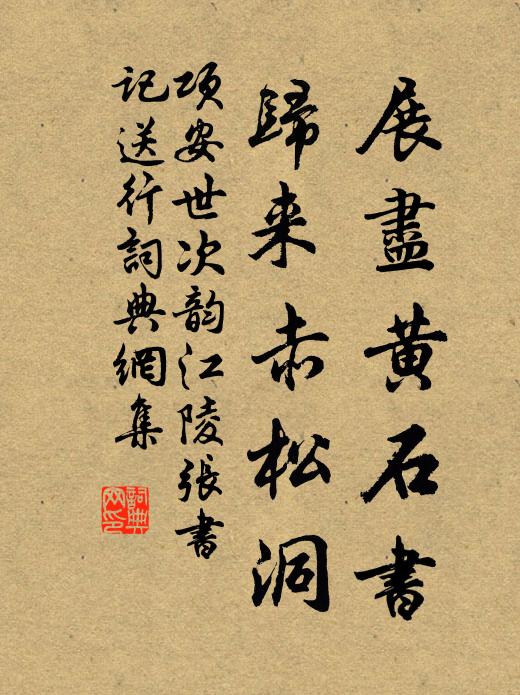 展盡黄石書
歸来赤松洞
项安世次韵江陵張書
记送行詞典網集
詞典
网印